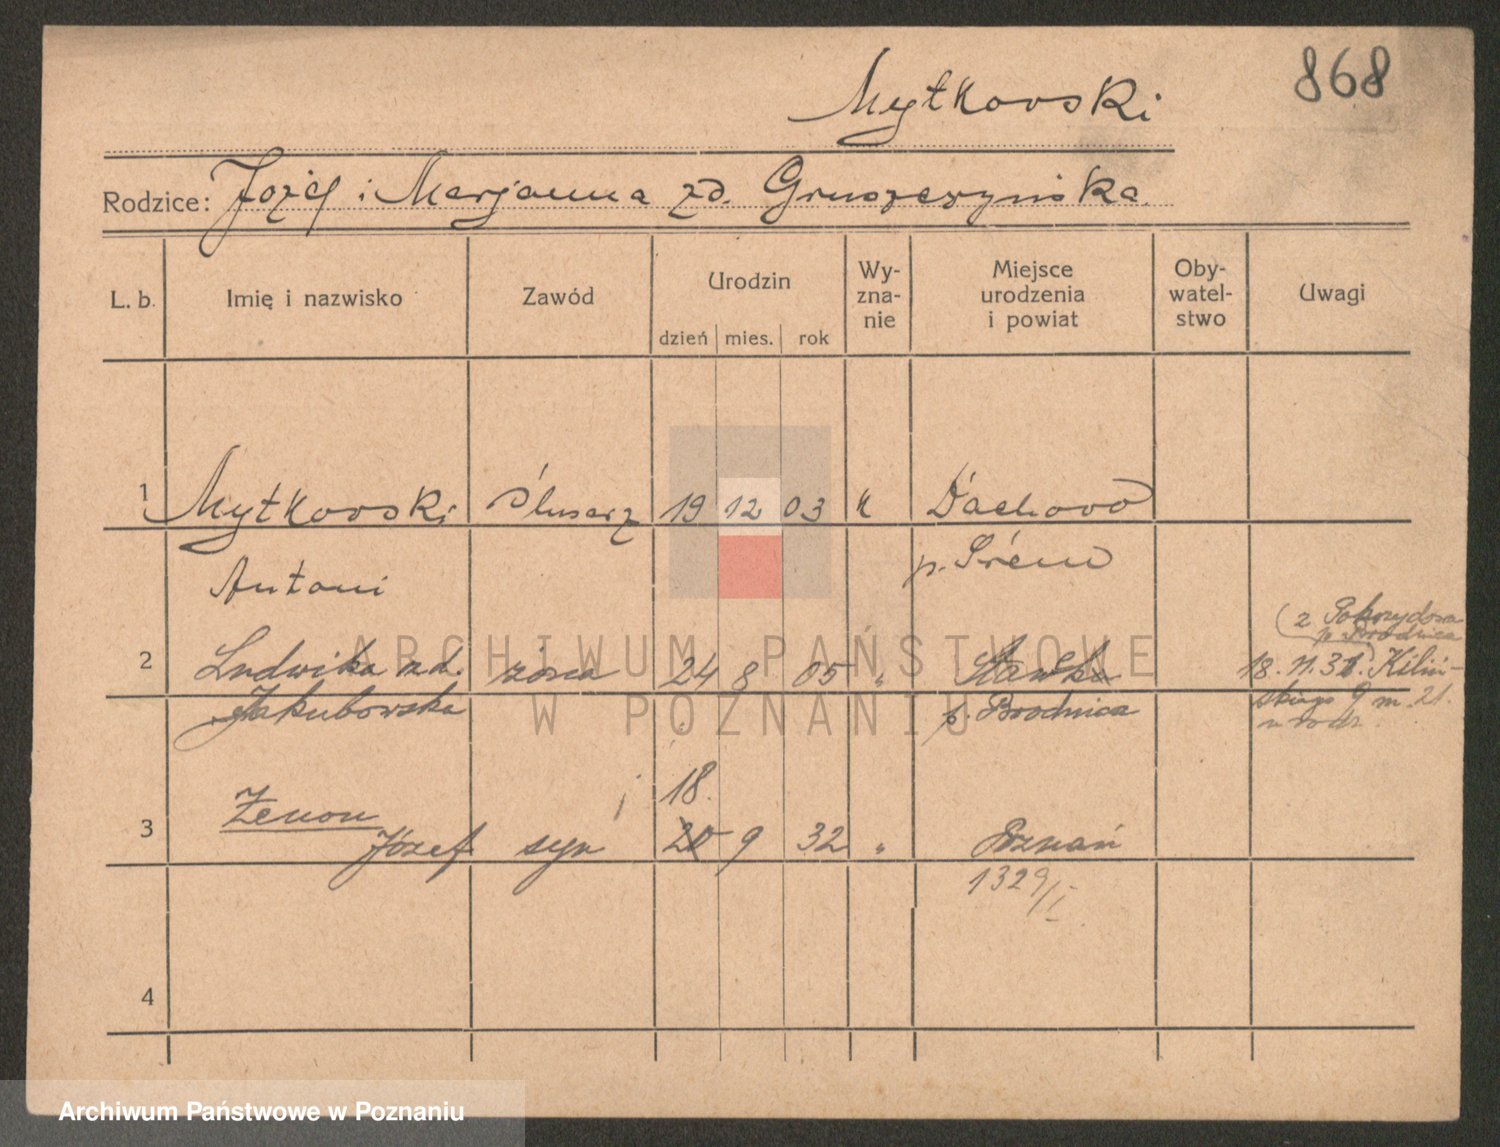 868
Mytkowski
Rodzice: Józef i Marjanna zd. Gruszczyńska
L. b. Imię i nazwisko Zawód Urodzin dzień mies. rok Wy-zna-nie Miejsce urodzenia i powiat Oby-watel-stwo Uwagi
1 Mytkowski ślusarz 19 12 03 k Dachowo
Antoni p. Śrem
(z Pokrzydowa
p. Brodnica)
2 Ludwika zd. żona 24 8 05 " 18.11.31. Kiliń-
Jakubowska p. Brodnica skiego 9 m. 21.
u rodz.
18.
Zenon
3 Józef syn 20 9 32 " Poznań
1329/I
4
ARCHIWUM PAŃSTWOWE
W POZNANIU
Archiwum Państwowe w Poznaniu